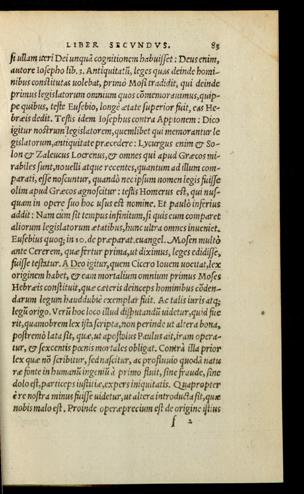 LIBER SECVNDVS. 83
si ullam ueri Dei unquã cognitionem habuisset: Deus enim,
autore Iosepho lib. 3. Antiquitatũ, leges quas deinde homi-
nibus constitutas uolebat, primò Mosi tradidit, qui deinde
primus legislatorum omnium quos cõmemorauimus, quip-
pe quibus, teste Eusebio, longè ætate superior fuit, eas He-
bræis dedit. Testis idem Iosephus contra Appionem: Dico
igitur nostrum legislatorem, quemlibet qui memorantur le
gislatorum, antiquitate præcedere: Lycurgus enim & So-
lon & Zaleucus Locrensis, & omnes qui apud Græcos mi-
rabiles sunt, nouelli atque recentes, quantum ad illum com-
parati, esse noscuntur, quandò nec ipsum nomen legis fuisse
olim apud Græcos agnoscitur: testis Homerus est, qui nus-
quam in opere suo hoc usus est nomine. Et paulò inferius
addit: Nam cum sit tempus infinitum, si quis eum comparet
aliorum legislatorum ætatibus, hunc ultra omnes inueniet.
Eusebius quoq; in 10. de præparat. euangel. Mosen multò
ante Cererem, quæ fertur prima, ut diximus, leges edidisse,
fuisse testatur. A Deo igitur, quem Cicero Iouem uocitat, lex
originem habet, & eam mortalium omnium primus Moses
Hebræis constituit, quæ cæteris deinceps hominibus cõden-
darum legum haud dubiè exemplar fuit. Ac talis iuris atq;
legũ origo. Verũ hoc loco illud disputandũ uidetur, quid fue
rit, quamobrem lex ista scripta, non perinde ut altera bona,
postremò lata sit, quæ, ut apostolus Paulus ait, iram opera-
tur, & sexcentis pœnis mortales obligat. Contrà illa prior
lex quæ nõ scribitur, sed nascitur, ac profluuio quodã natu
ræ fonte in humanũ ingeniũ à primo fluit, sine fraude, sine
dolo est, particeps iustitiæ, expers iniquitatis. Quapropter
è re nostra minus fuisse uidetur, ut altera introducta sit, quæ
nobis malo est. Proinde operæprecium est de origine istius
f 2